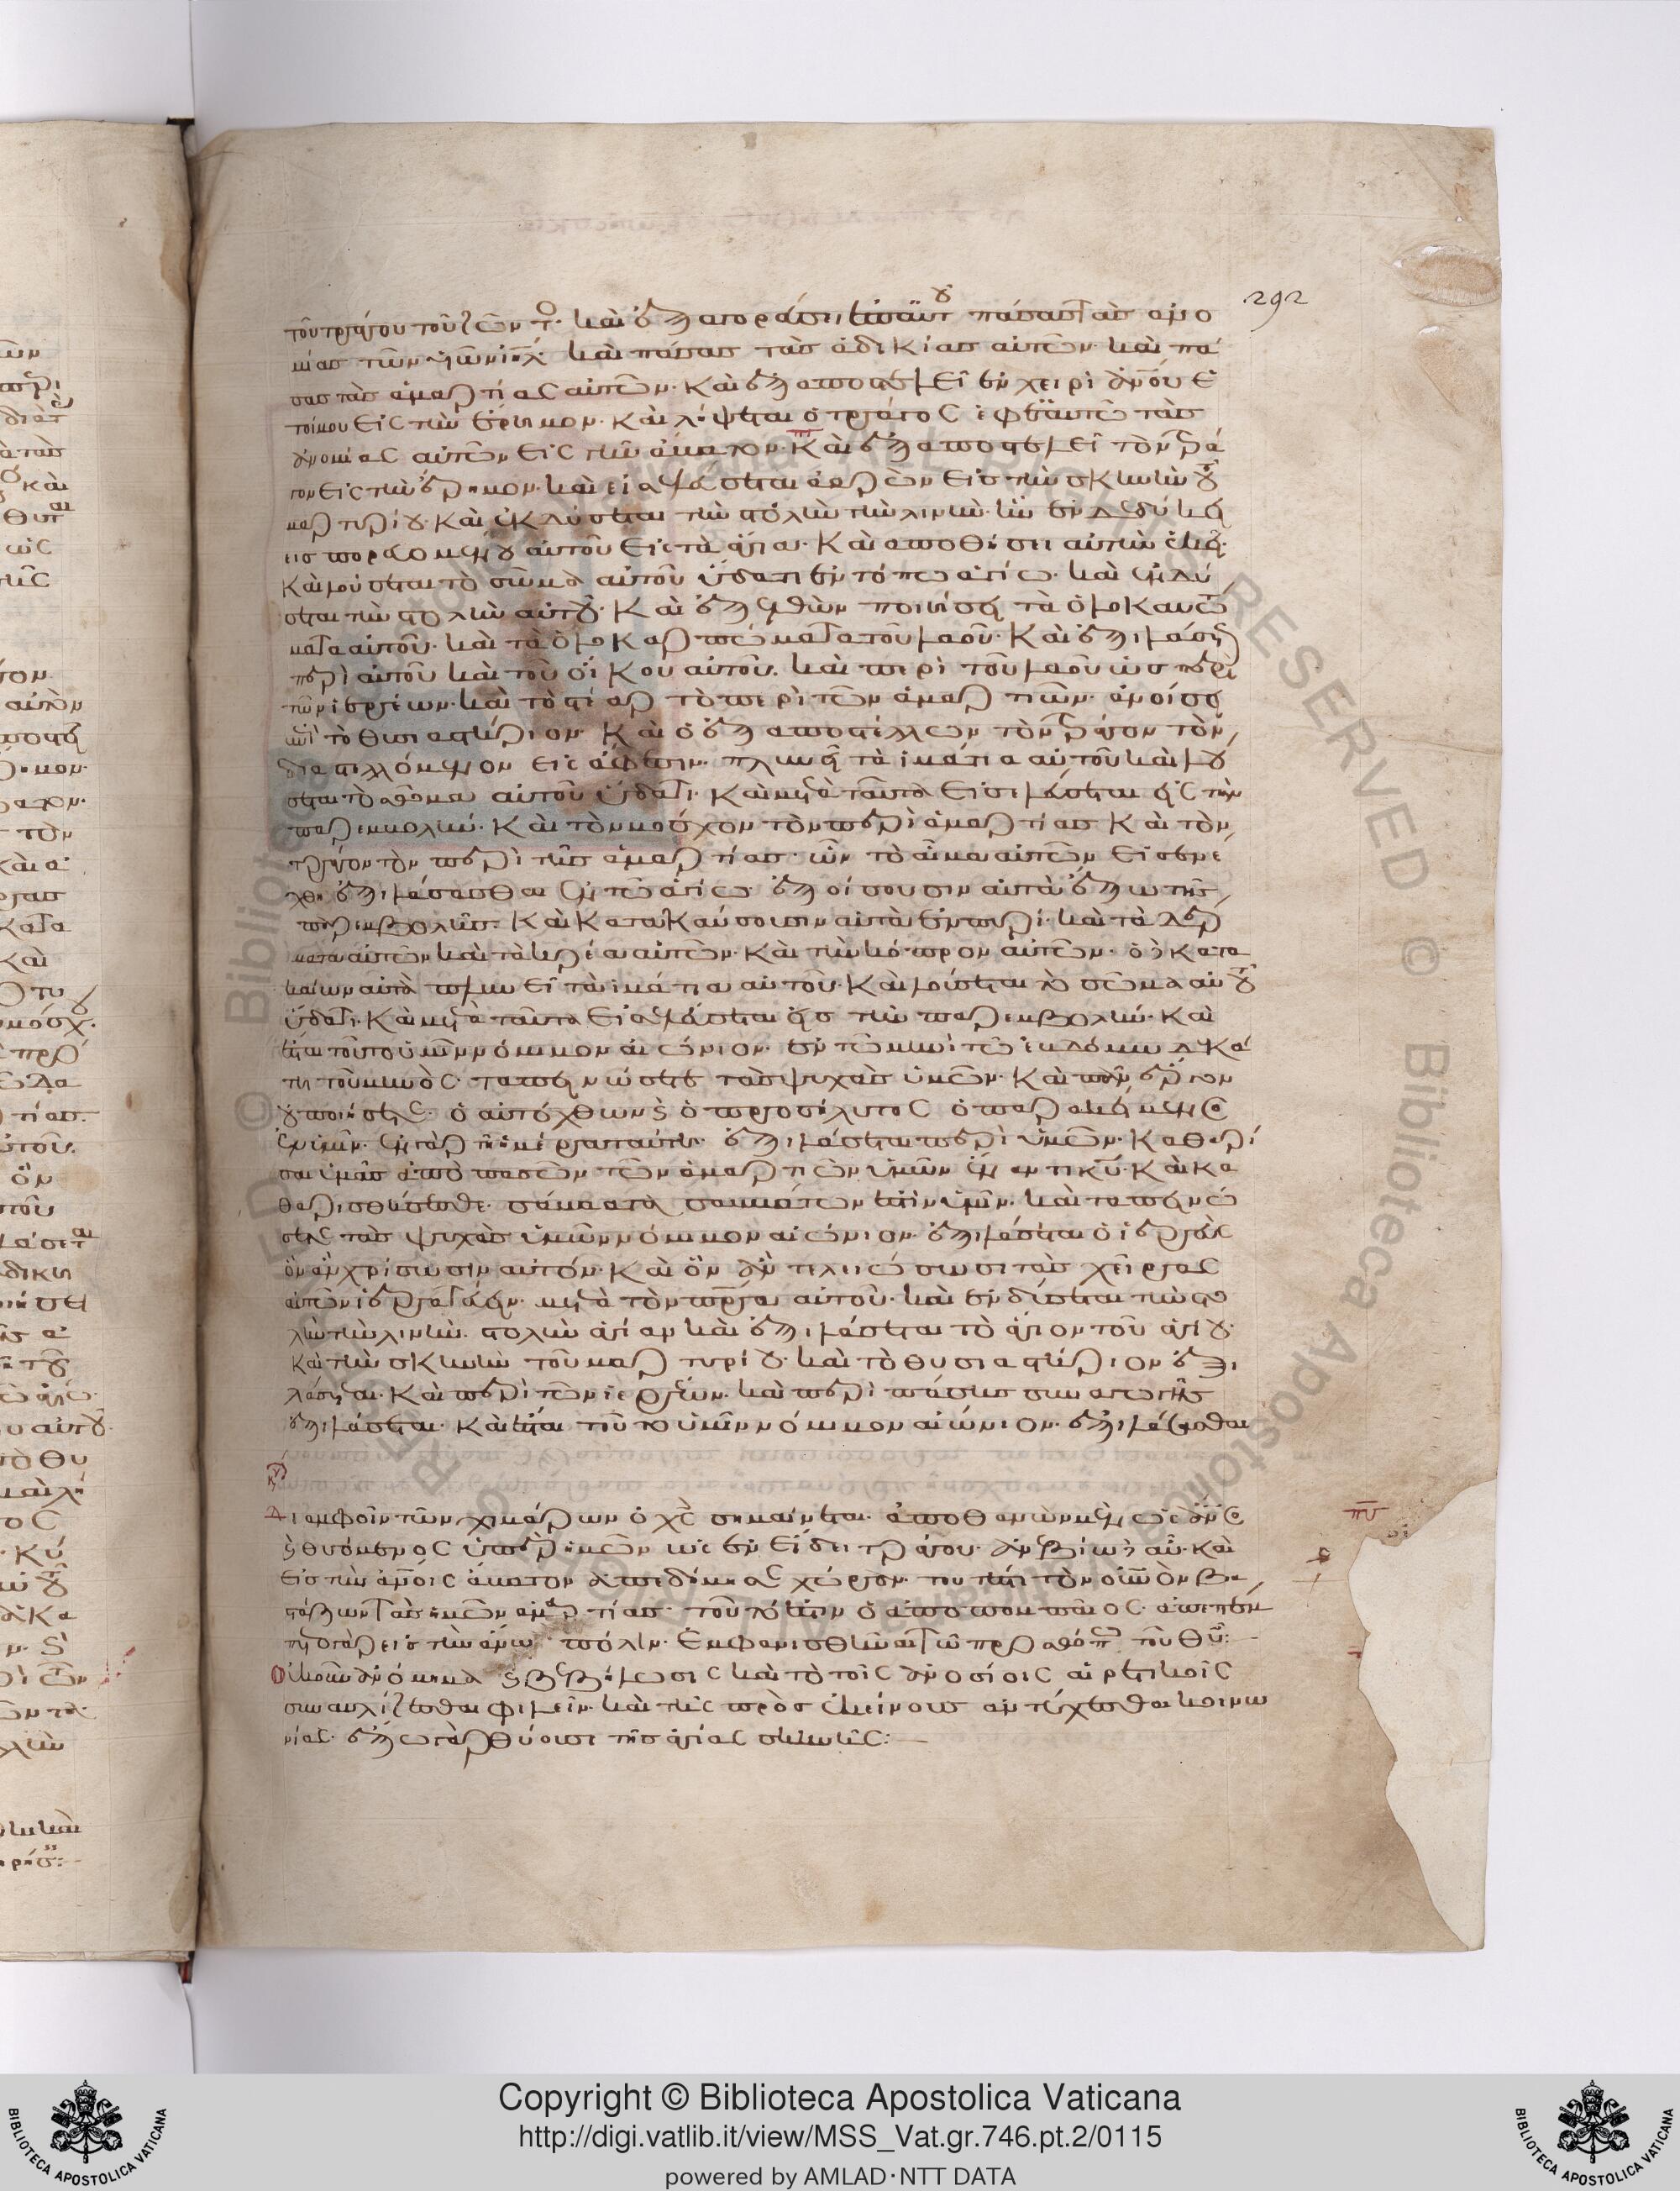 292
τοῦ τράγου τοῦ ζῶντος· καὶ ἐξαγορεύσει ἐπ αὐτοῦ πάσας τὰς ἀνο
μίας τῶν υἱῶν ιηλ καὶ πάσας τὰς ἀδικίας αὐτῶν· καὶ πά
σας τὰς ἁμαρτίας αὐτῶν· καὶ ἐξαποστελεῖ ἐν χειρὶ ἀνου ἑ
τοίμου εἰς τὴν ἔρημον· καὶ λήψεται ὁ τράγος ἐφ ἑαυτῶ τὰς
ἀνομίας αὐτῶν εἰς γῆν ἄβατον· καὶ ἐξαποστελεῖ τὸν τρά
γον εἰς τὴν ἔρημον· καὶ εἰσελεύσεται ἀαρὼν εἰς τὴν σκηνὴν τοῦ
μαρτυρίου· καὶ ἐκδύσεται τὴν στολὴν τὴν λινῆν· ἣν ἐνδεδύκει
εἰσπορευομένου αὐτοῦ εἰς τὰ ἅγια· καὶ ἀποθήσει αὐτὴν ἐκεῖ·
καὶ λούσεται τὸ σῶμα αὐτοῦ ὕδατι ἐν τόπω ἁγίω· καὶ ἐνδύ
σεται τὴν στολὴν αὐτοῦ· καὶ ἐξελθὼν ποιήσει τὰ ὁλοκαυτώ
ματα αὐτοῦ· καὶ τὰ ὁλοκαρπώματα τοῦ λαοῦ· καὶ ἐξιλάσεται
περὶ αὐτοῦ καὶ τοῦ οἴκου αὐτοῦ· καὶ περὶ τοῦ λαοῦ ὡς περὶ
τῶν ἱερέων· καὶ τὸ στέαρ τὸ περὶ τῶν ἁμαρτιῶν· ἀνοίσει
ἐπὶ τὸ θυσιαστήριον· καὶ ὁ ἐξαποστέλλων τὸν τράγον τὸν
διεσταλμένον εἰς ἄφεσιν· πλυνεῖ τὰ ἱμάτια αὐτοῦ καὶ λού
σεται τὸ σῶμα αὐτοῦ ὕδατι· καὶ μετὰ ταῦτα εἰσελεύσεται εἰς τὴν
παρεμβολήν· καὶ τὸν μόσχον τὸν περὶ ἁμαρτίας καὶ τὸν
τράγον τὸν περὶ τῆς ἁμαρτίας· ὧν τὸ αἷμα αὐτῶν εἰσηνέ
χθη ἐξιλάσασθαι ἐν τῶ ἁγίω· ἐξοίσουσιν αὐτὰ ἔξω τῆς
παρεμβολῆς· καὶ κατακαύσουσιν αὐτὰ ἐν πυρί· καὶ τὰ δέρ
ματα αὐτῶν καὶ τὰ κρέα αὐτῶν· καὶ τὴν κόπρον αὐτῶν· ὁ δὲ κατα
καίων αὐτὰ πλυνεῖ τὰ ἱμάτια αὐτοῦ· καὶ λούσεται τὸ σῶμα αὐτοῦ
ὕδατι· καὶ μετὰ ταῦτα εἰσελεύσεται εἰς τὴν παρεμβολήν· καὶ
ἔσται τοῦτο ὑμῖν νόμιμον αἰώνιον· ἐν τῶ μηνὶ τῶ ἑβδόμω δεκά
τη τοῦ μηνὸς· ταπεινώσετε τὰς ψυχὰς ὑμῶν· καὶ πᾶν ἔργον
οὐ ποιήσετε· ὁ αὐτόχθων καὶ ὁ προσήλυτος ὁ προσκείμενος
ἐν ὑμῖν· ἐν γὰρ τῆ ἡμέρα ταύτη· ἐξιλάσεται περὶ ὑμῶν· καθαρί
σαι ὑμᾶς ἀπὸ πασῶν τῶν ἁμαρτιῶν ὑμῶν ἔναντι κυ· καὶ κα
θαρισθήσεσθε· σάββατα σαββάτων ἐστὶν ὑμῖν· καὶ ταπεινώ
σετε τὰς ψυχὰς ὑμῶν νόμιμον αἰώνιον· ἐξιλάσεται ὁ ἱερεὺς
ὃν ἂν χρίσωσιν αὐτόν· καὶ ὃν ἂν τελειώσωσι τὰς χεῖρας
αὐτῶν ἱερατεύειν· μετὰ τὸν πρα αὐτοῦ· καὶ ἐνδύσεται τὴν στο
λὴν τὴν λινῆν· στολὴν ἁγίαν καὶ ἐξιλάσεται τὸ ἅγιον τοῦ ἁγίου·
καὶ τὴν σκηνὴν τοῦ μαρτυρίου· καὶ τὸ θυσιαστήριον ἐξι
λάσεται· καὶ περὶ τῶν ἱερέων· καὶ περὶ πάσης συναγωγῆς
ἐξιλάσεται· καὶ ἔσται τοῦτο ὑμῖν νόμιμον αἰώνιον· ἐξιλάσκεσθαι
Δι ἀμφοῖν τῶν χιμάρων ὁ χς σημαίνεται· ἀποθανὼν μὲν ὡς ἀνος
καὶ θυόμενος ὑπὲρ ἡμῶν ὡς ἐν εἴδει τράγου· ἀνεβίω δὲ αὖ· καὶ
εἰς τὴν ἀνοις ἄβατον ἀπεδήμησε χώραν· τουτέστι τὸν οὐνον βα
στάζων τὰς ἡμῶν ἁμαρτίας· τοῦτό ἐστιν ὁ ἀποπομπαῖος·
γὰρ εἰς τὴν ἄνω πόλιν· ἐμφανισθῆναι τῶ προσώπω τοῦ θυ:
Οἰκοῦν ἀνόμημα καὶ βεβήλωσις καὶ τὸ τοῖς ἀνοσίοις αἱρετικοῖς
συναυλίζεσθαι φιλεῖν· καὶ τῆς πρὸς ἐκείνους ἀντέχεσθαι κοινω
νίας· ἔξω γὰρ θύουσι τῆς ἁγίας σκηνῆς:
Copyright © Biblioteca Apostolica Vaticana
http://digi.vatlib.it/view/MSS_Vat.gr.746.pt.2/0115
powered by AMLAD·NTT DATA